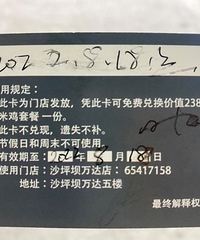 2022.8.18止
用规定：
此卡为门店发放，凭此卡可免费兑换价值238
米鸡套餐一份。
此卡不兑现，遗失不补。
节假日和周末不可使用。
有效期至：2022年8月18日
使用门店：沙坪坝万达店 65417158
地址：沙坪坝万达五楼
最终解释权